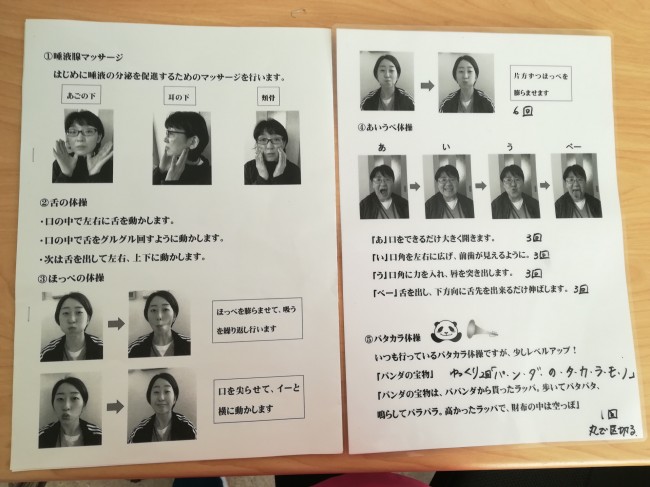 ①唾液腺マッサージ
はじめに唾液の分泌を促進するためのマッサージを行います。
あごの下
耳の下
頬骨
②舌の体操
・口の中で左右に舌を動かします。
・口の中で舌をグルグル回すように動かします。
・次は舌を出して左右、上下に動かします。
③ほっぺの体操
ほっぺを膨らませて、吸う
を繰り返し行います
口を尖らせて、イーと
横に動かします
片方ずつほっぺを
膨らませます
6回
④あいうべ体操
あ い う べー
『あ』口をできるだけ大きく開きます。 3回
『い』口角を左右に広げ、前歯が見えるように。 3回
『う』口角に力を入れ、唇を突き出します。 3回
『べー』舌を出し、下方向に舌先を出来るだけ伸ばします。 3回
⑤パタカラ体操
いつも行っているパタカラ体操ですが、少しレベルアップ！
『パンダの宝物』 ゆっくり2回「パ・ン・ダ・の・タ・カ・ラ・モ・ノ」
『パンダの宝物は、パパンダから貰ったラッパ。歩いてパタパタ、
鳴らしてパラパラ。高かったラッパで、財布の中は空っぽ』
1回
丸で区切る